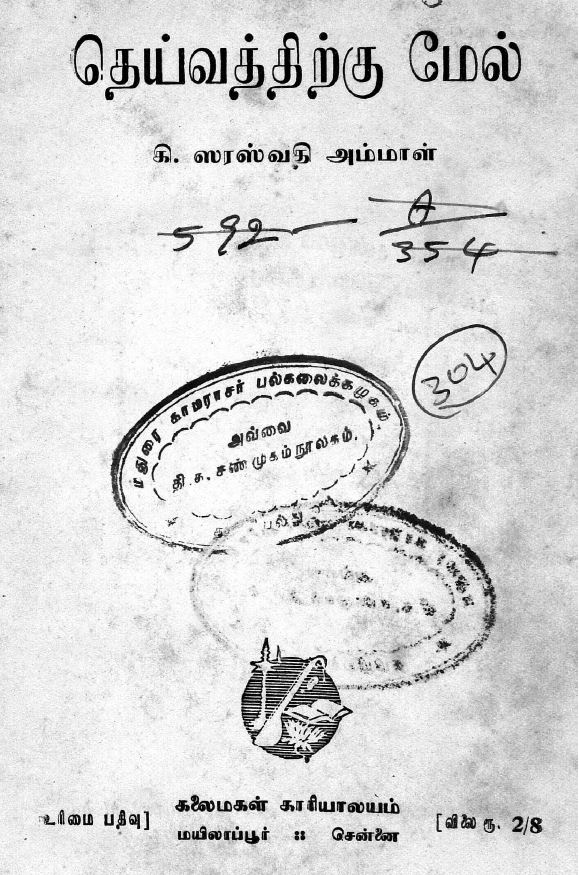 தெய்வத்திற்கு மேல்
கி. ஸரஸ்வதி அம்மாள்
592 A
354
304
மதுரை காமராசர் பல்கலைக்கழகம்.
அவ்வை
தி.க.சண்முகம்நூலகம்.
கலைமகள் காரியாலயம்
உரிமை பதிவு] மயிலாப்பூர் :: சென்னை [விலை ரூ. 2/8